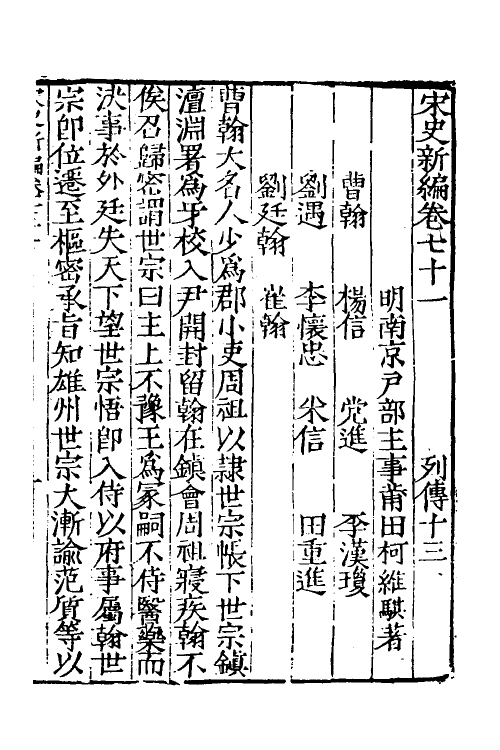 宋史新編卷七十一　列傳十三
明南京戸部主事莆田柯維騏著
曹翰　楊信　党進　李漢瓊
劉遇　李懷忠　米信　田重進
劉廷翰　崔翰
曹翰大名人少爲郡小吏周祖以隷世宗帳下世宗鎮
澶淵署爲牙校入尹開封留翰在鎮會周祖寢疾翰不
俟召歸密謂世宗曰主上不豫王爲冢嗣不侍醫藥而
決事於外廷失天下望世宗悟卽入侍以府事屬翰世
宗卽位遷至樞密承旨知雄州世宗大漸諭范質等以